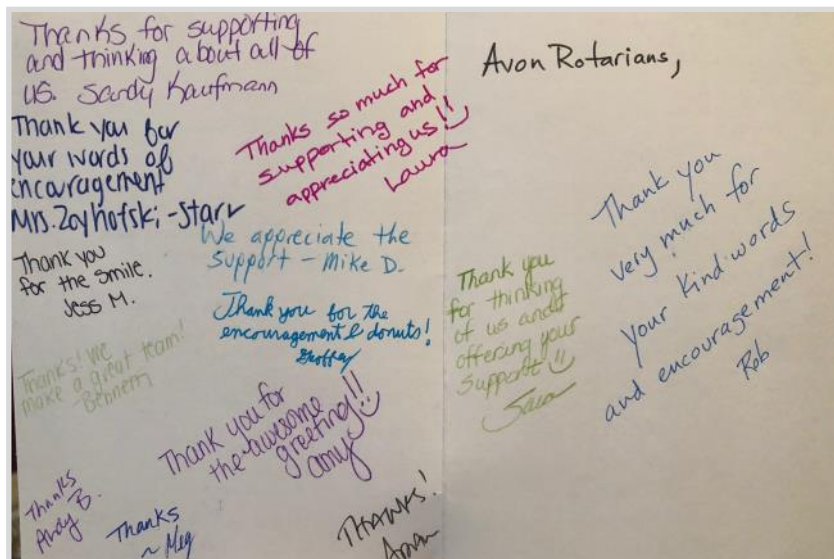 Thanks for supporting
and thinking about all of
us. Sandy Kaufmann
Thank you for
your words of
encouragement
Mrs. Zoyhofski-Starr
Thanks so much for
supporting and
appreciating us!!
Laura
We appreciate the
support - Mike D.
Thank you
for the smile.
Jess M.
Thank you for the
encouragement & donuts!
Thanks! We
make a great team!
Thank you for
the awesome
greeting!!
amy
Thanks
Andy B.
Thanks
~ Meg
THANKS!
Avon Rotarians,
Thank you
for thinking
of us and
offering your
support!!
Sara
Thank you
very much for
your kind words
and encouragement!
Rob